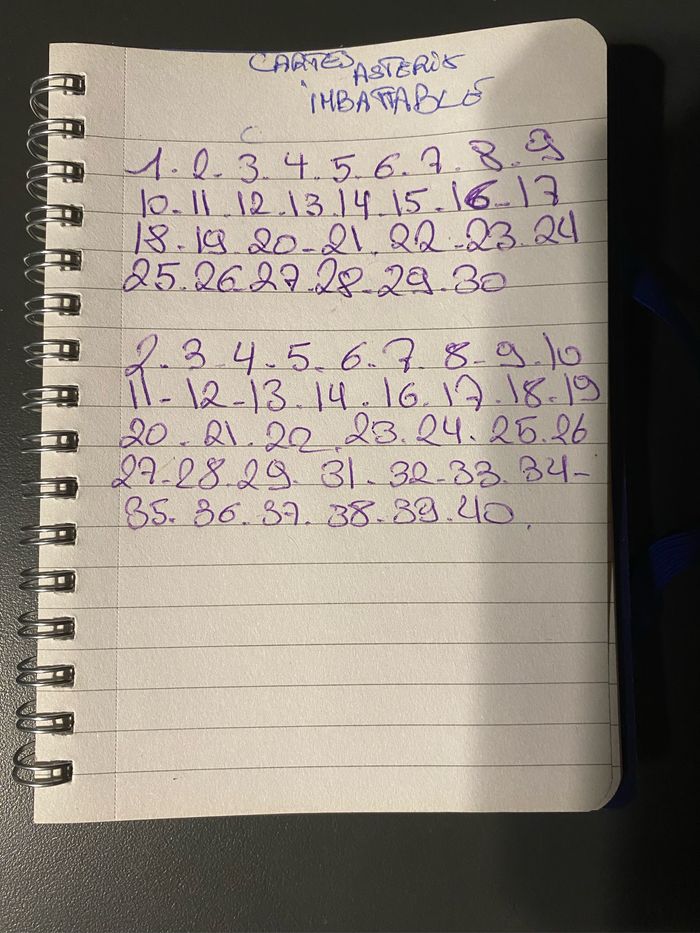 CARTES ASTERIX
IMBATTABLE
1. 2. 3. 4. 5. 6. 7. 8. 9
10-11.12.13.14.15.16-17
18.19.20-21.22-23.24
25.26.27.28.29.30
2.3.4.5.6.7.8-9.10
11-12-13.14.16.17.18.19
20.21.22.23.24.25.26
27.28.29.31.32-33.34-
35.36.37.38.39.40.